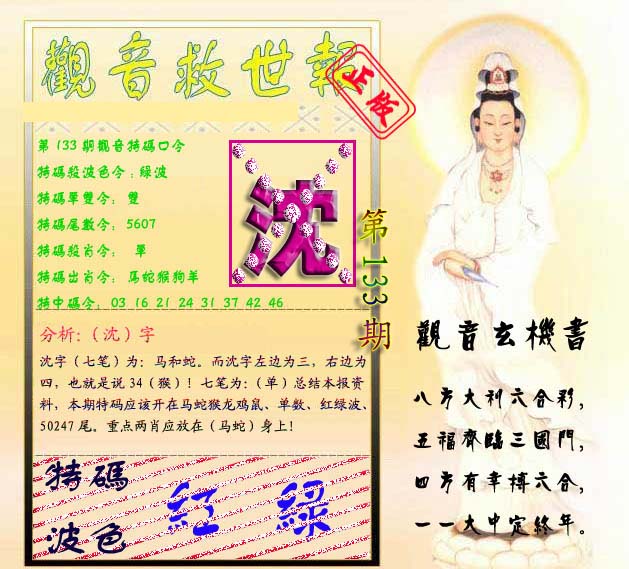 觀音救世報
正版
第133期觀音特碼口令
特碼殺波色令:綠波
特碼單雙令: 雙
特碼尾數令: 5607
特碼殺肖令: 單
特碼出肖令: 馬蛇猴狗羊
特中碼令: 03 16 21 24 31 37 42 46
沈
第133期
分析:（沈）字
沈字（七笔）为: 马和蛇。而沈字左边为三, 右边为
四, 也就是说 34（猴）! 七笔为:（单）总结本报资
料, 本期特码应该开在马蛇猴龙鸡鼠、单数、红绿波、
50247 尾。重点两肖应放在（马蛇）身上!
特碼
波色
紅 綠
觀音玄機書
八方大利六合彩,
五福齊臨三國門,
四方有幸搏六合,
一一大中定終年。